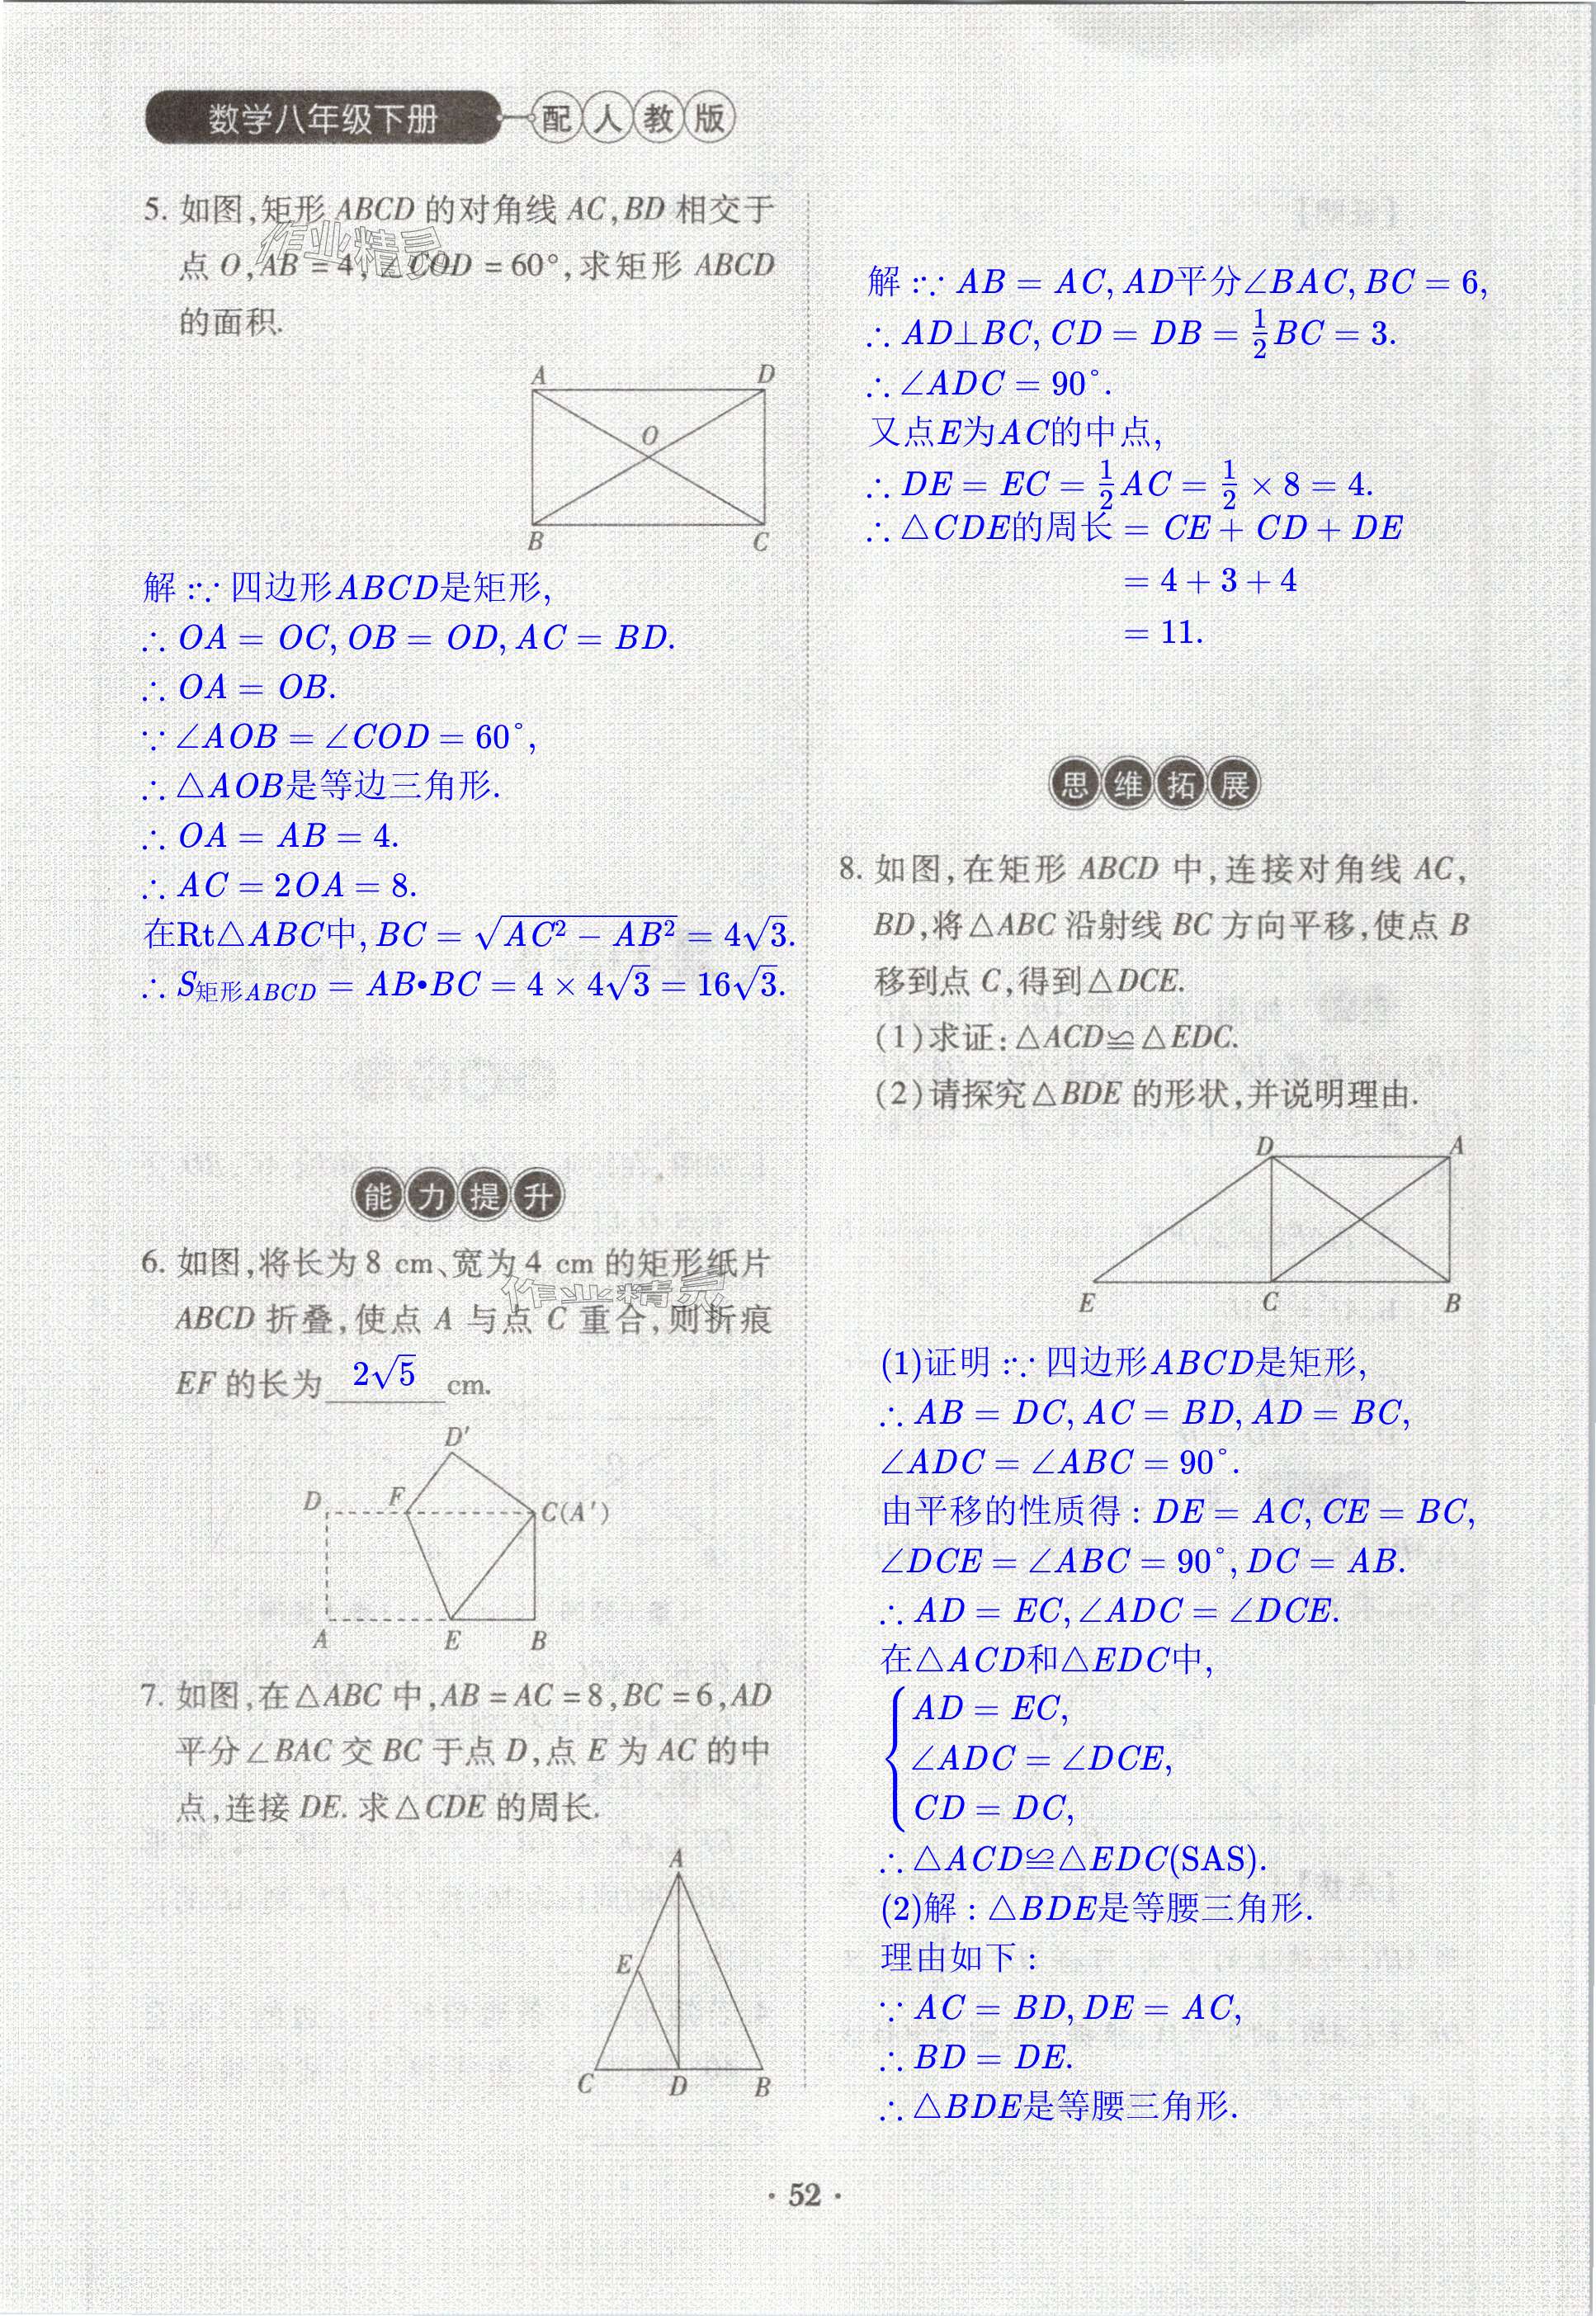 数学八年级下册 配人教版
5. 如图,矩形 ABCD 的对角线 AC,BD 相交于
点 O,AB=4,∠COD=60°,求矩形 ABCD
的面积.
作业精灵
A D
O
B C
解:∵ 四边形ABCD是矩形,
∴ OA = OC, OB = OD, AC = BD.
∴ OA = OB.
∵ ∠AOB = ∠COD = 60°,
∴ △AOB是等边三角形.
∴ OA = AB = 4.
∴ AC = 2OA = 8.
在Rt△ABC中, BC = √(AC² − AB²) = 4√3.
∴ S矩形ABCD = AB•BC = 4 × 4√3 = 16√3.
能力提升
6. 如图,将长为 8 cm、宽为 4 cm 的矩形纸片
ABCD 折叠,使点 A 与点 C 重合,则折痕
EF 的长为 2√5 cm.
作业精灵
D′
D F C(A′)
A E B
7. 如图,在△ABC 中,AB=AC=8,BC=6,AD
平分∠BAC 交 BC 于点 D,点 E 为 AC 的中
点,连接 DE. 求△CDE 的周长.
A
E
C D B
解:∵ AB = AC, AD平分∠BAC, BC = 6,
∴ AD⊥BC, CD = DB = 1/2 BC = 3.
∴ ∠ADC = 90°.
又点E为AC的中点,
∴ DE = EC = 1/2 AC = 1/2 × 8 = 4.
∴ △CDE的周长 = CE + CD + DE
= 4 + 3 + 4
= 11.
思维拓展
8. 如图,在矩形 ABCD 中,连接对角线 AC,
BD,将△ABC 沿射线 BC 方向平移,使点 B
移到点 C,得到△DCE.
(1)求证:△ACD≌△EDC.
(2)请探究△BDE 的形状,并说明理由.
D A
E C B
(1)证明:∵ 四边形ABCD是矩形,
∴ AB = DC, AC = BD, AD = BC,
∠ADC = ∠ABC = 90°.
由平移的性质得:DE = AC, CE = BC,
∠DCE = ∠ABC = 90°, DC = AB.
∴ AD = EC, ∠ADC = ∠DCE.
在△ACD和△EDC中,
{ AD = EC,
∠ADC = ∠DCE,
CD = DC,
∴ △ACD≌△EDC(SAS).
(2)解:△BDE是等腰三角形.
理由如下:
∵ AC = BD, DE = AC,
∴ BD = DE.
∴ △BDE是等腰三角形.
· 52 ·